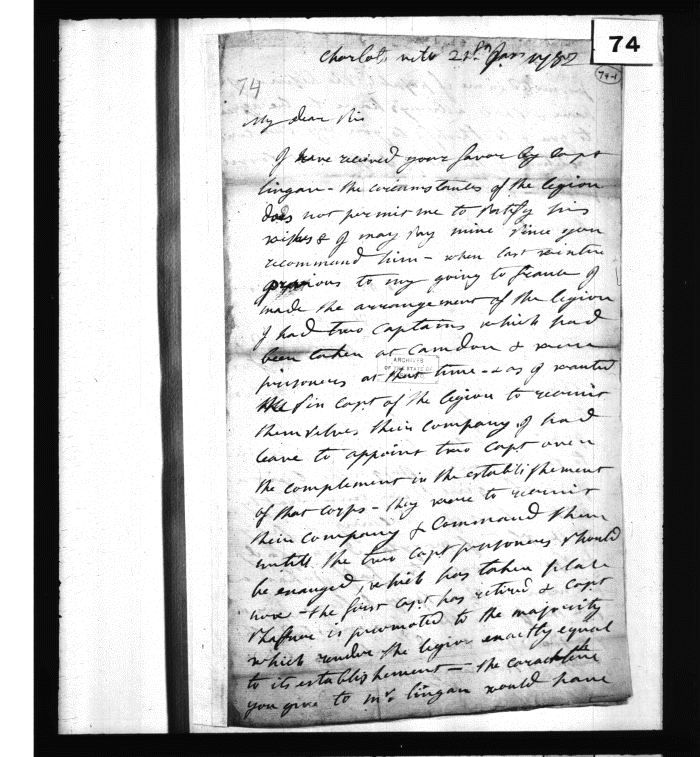 74
74-1
74
Charlots vile 21st Jan 1782
My dear Sir
I have received your favor by Capt
lingan - the circumstances of the legion
does not permit me to satisfy his
wishes & I may say mine since you
recommand him - when last winter
previous to my going to france I
made the arrangement of the legion
I had two captains which had
been taken at Camden & were
prisoners at that time - & as I wanted
ARCHIVES
OF THE STATE OF
the six Capt of the legion to recruit
themselves their company I had
leave to appoint two Capt over
the complement in the establishement
of that corps - they were to recruit
their company & Command them
untill the two capt prisoners should
be exanged, which has taken place
now - the first Capt has retired & Capt
Shaffner is promoted to the majority
which render the legion exactly equal
to its establishement - the
you give to Mr lingan would have